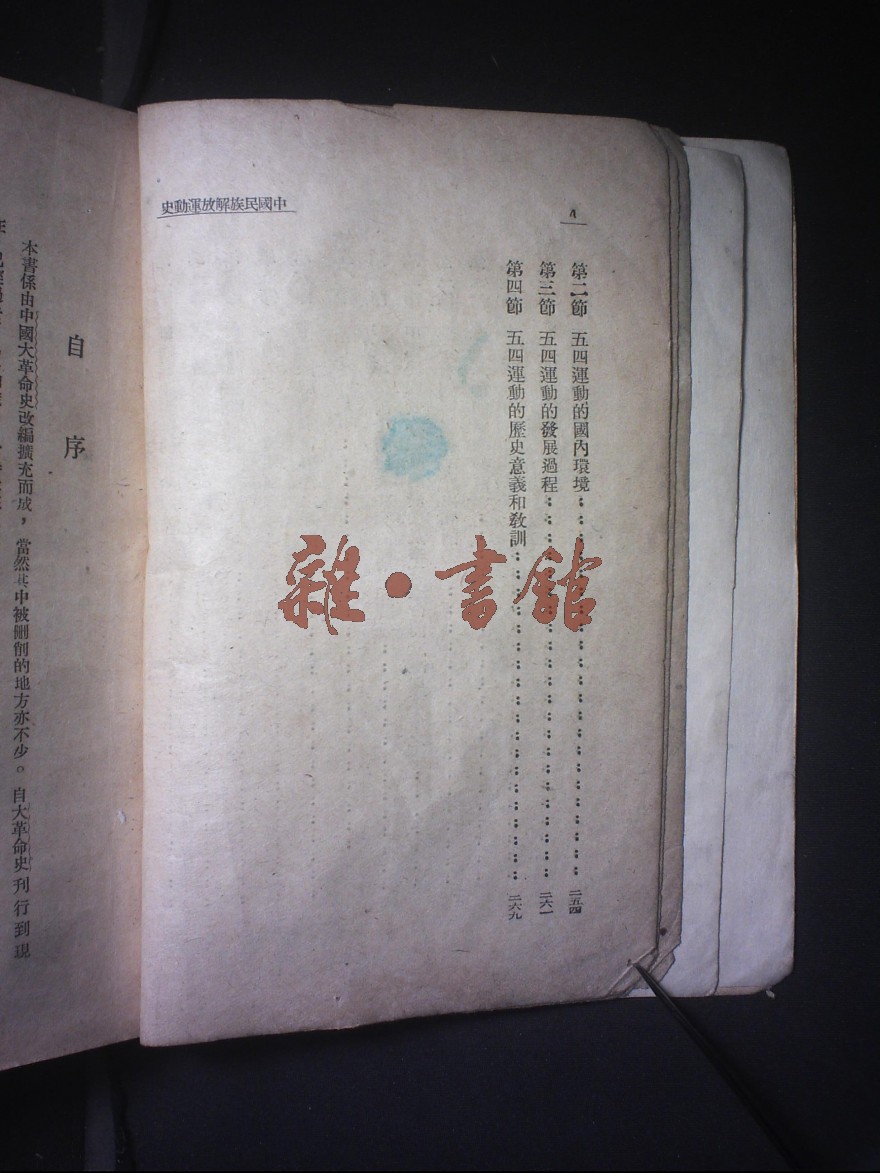 中國民族解放運動史
4
第二節 五四運動的國內環境⋯⋯二五四
第三節 五四運動的發展過程⋯⋯二六一
第四節 五四運動的歷史意義和教訓⋯⋯二六九
雜・書館
自序
本書係由中國大革命史改編擴充而成，當然其中被刪削的地方亦不少。自大革命史刊行到現